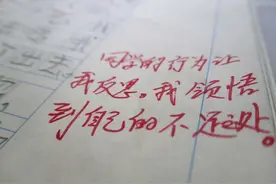 同学的行为让
我反思。我领悟
到自己的不足之处。